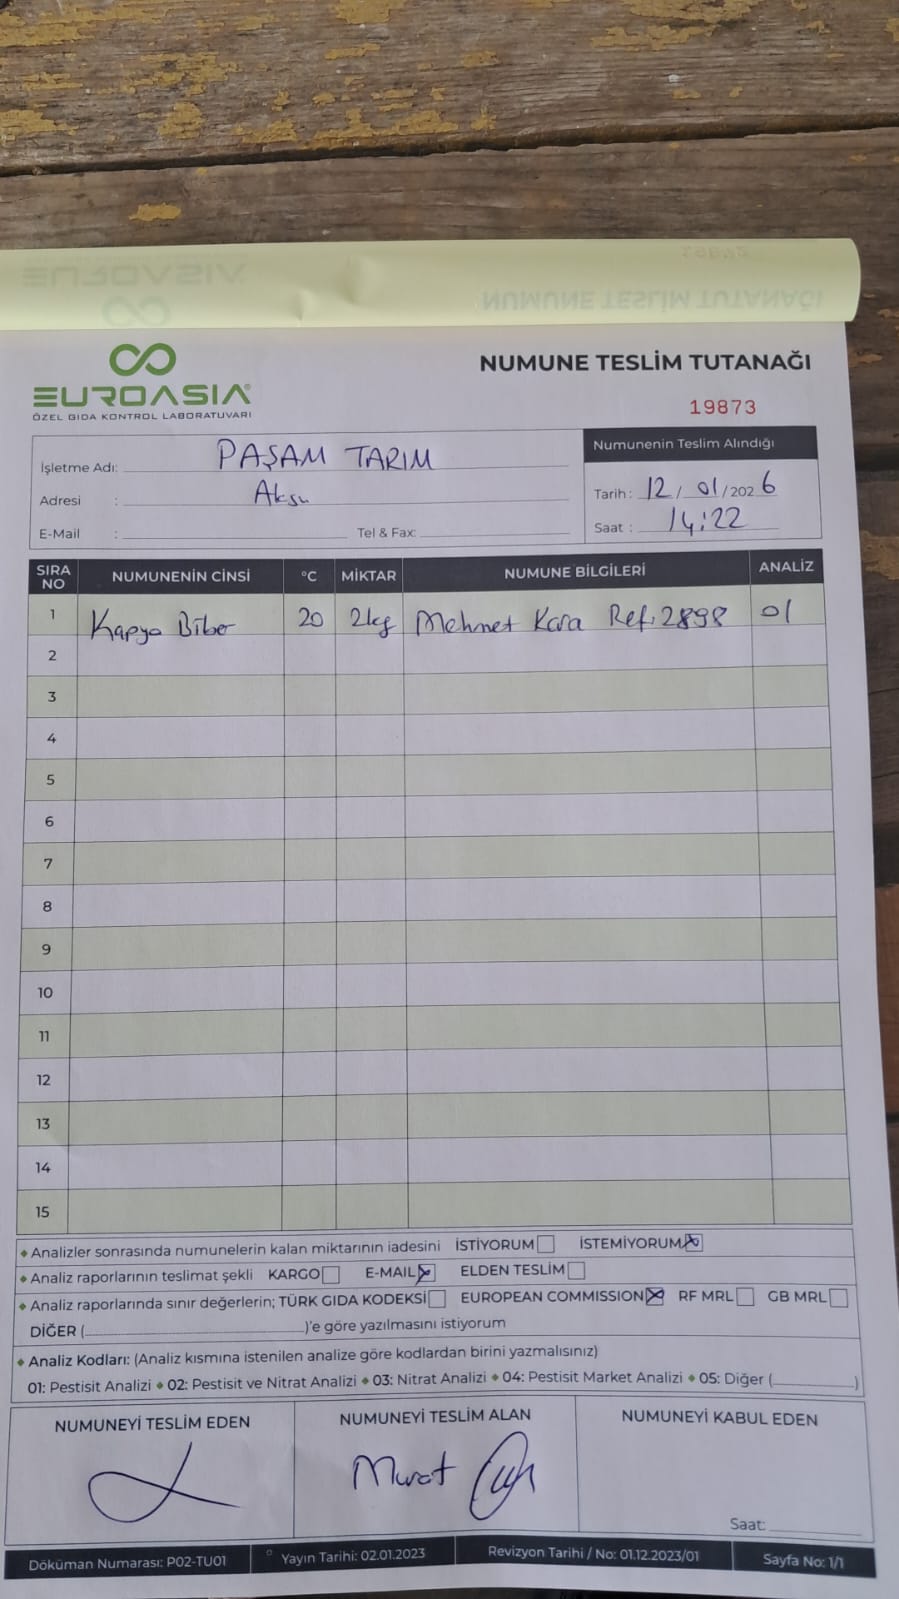 NUMUNE TESLİM TUTANAĞI
EUROASIA®
ÖZEL GIDA KONTROL LABORATUVARI
NUMUNE TESLİM TUTANAĞI
19873
İşletme Adı: PAŞAM TARIM
Adresi : Aksu
E-Mail : Tel & Fax:
Numunenin Teslim Alındığı
Tarih: 12/01/2026
Saat : 14:22
SIRA NO NUMUNENİN CİNSİ °C MİKTAR NUMUNE BİLGİLERİ ANALİZ
1 Kapya Biber 20 2kg Mehmet Kara Ref:2898 01
2
3
4
5
6
7
8
9
10
11
12
13
14
15
Analizler sonrasında numunelerin kalan miktarının iadesini İSTİYORUM İSTEMİYORUM
Analiz raporlarının teslimat şekli KARGO E-MAIL ELDEN TESLİM
Analiz raporlarında sınır değerlerin; TÜRK GIDA KODEKSİ EUROPEAN COMMISSION RF MRL GB MRL
DİĞER ( )'e göre yazılmasını istiyorum
Analiz Kodları: (Analiz kısmına istenilen analize göre kodlardan birini yazmalısınız)
01: Pestisit Analizi 02: Pestisit ve Nitrat Analizi 03: Nitrat Analizi 04: Pestisit Market Analizi 05: Diğer ( )
NUMUNEYİ TESLİM EDEN NUMUNEYİ TESLİM ALAN NUMUNEYİ KABUL EDEN
Murat
Saat:
Döküman Numarası: P02-TU01 Yayın Tarihi: 02.01.2023 Revizyon Tarihi / No: 01.12.2023/01 Sayfa No: 1/1